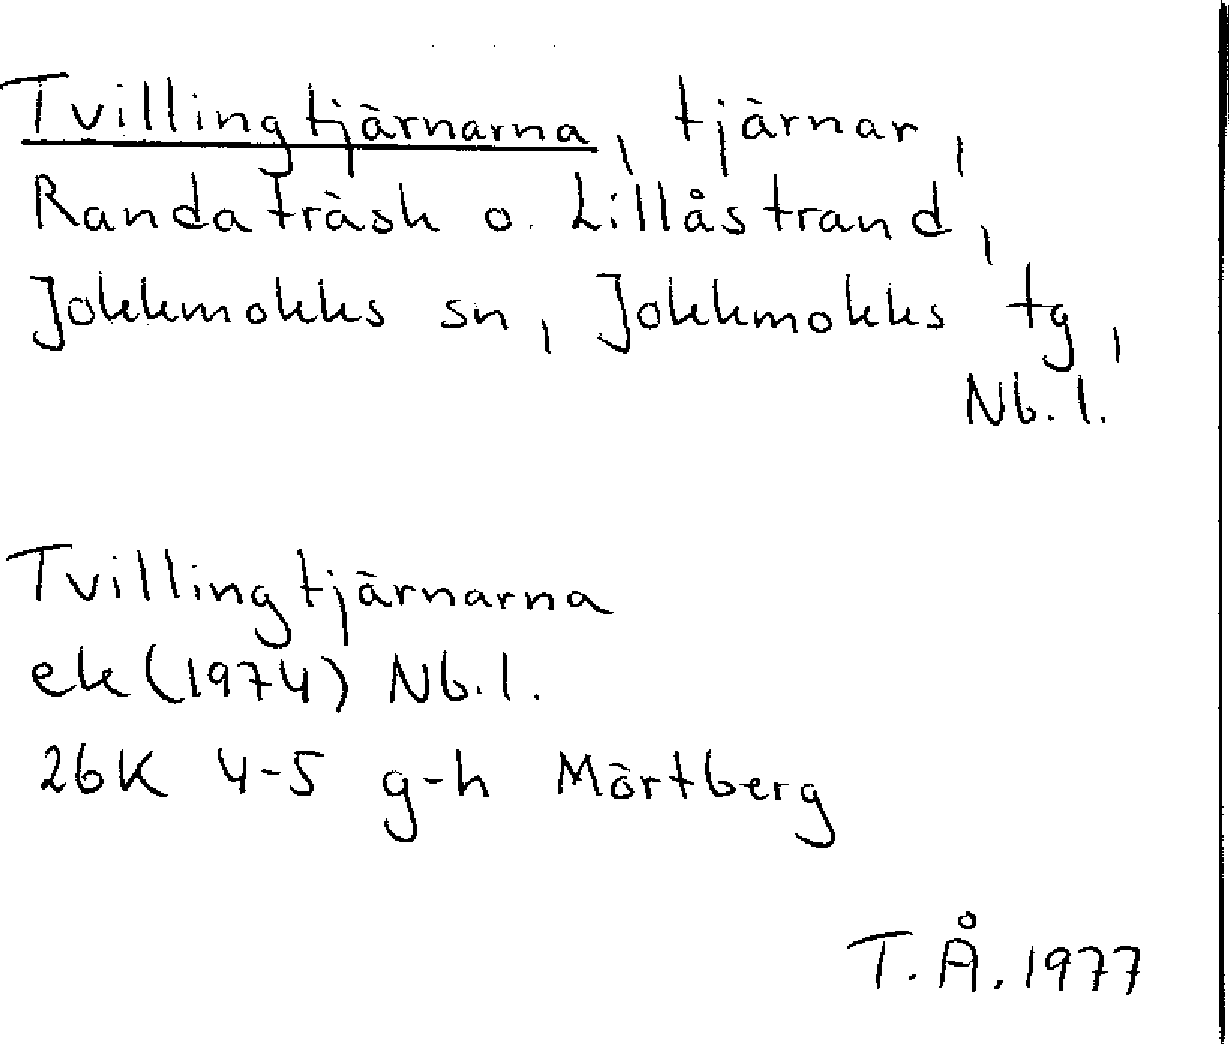 Tvillingtjärnarna, tjärnar,
Randaträsk o. Lillåstrand,
Jokkmokks sn, Jokkmokks tg,
Nb. l.
Tvillingtjärnarna
ek (1974) Nb. l.
26K 4-5 g-h Mörtberg
T. Å. 1977